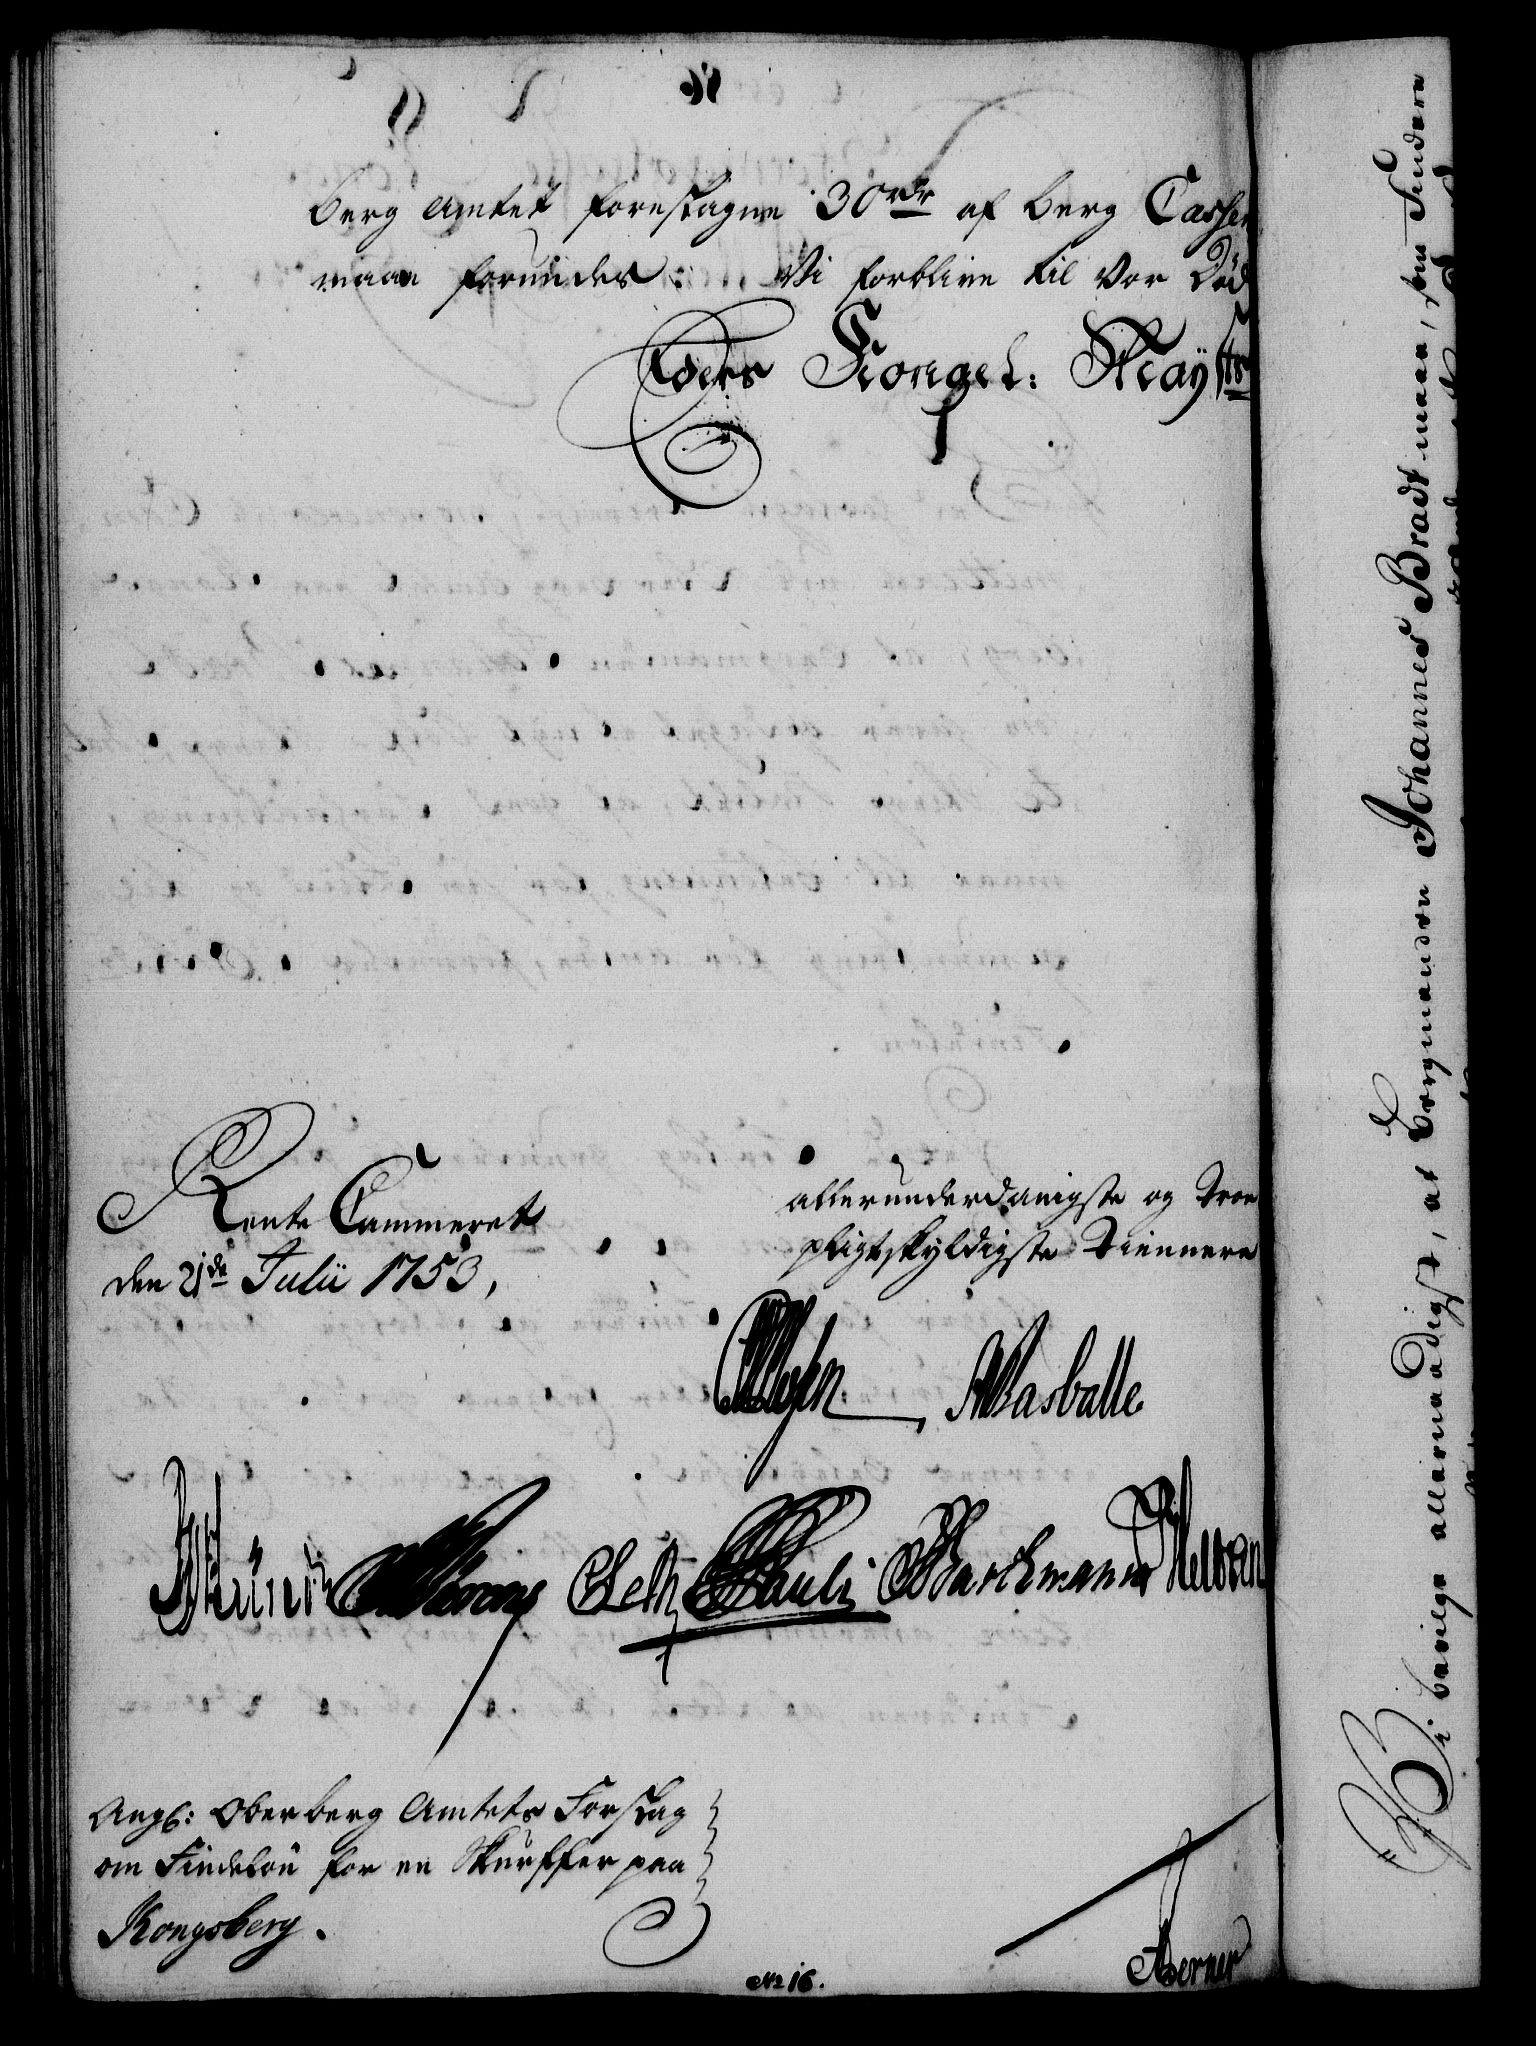 berg Amtet foreslagne 30 rdr af berg Cassen
maae forundes. Vi forblive til vor Død
Eders Kongel: Mayts
Rente Cammeret
den 21de Julii 1753,
allerunderdanigste og troe
pligtskyldigste Tienere
ABasballe
Pauli Barchmann
Angl: Oberberg Amtets Forslag
om Findeløn for en Skurffer paa
Kongsberg.
Berner
No 16.
Vi bevilge allernaadigst, at bergmanden Johannes Bradt maae, som Findere